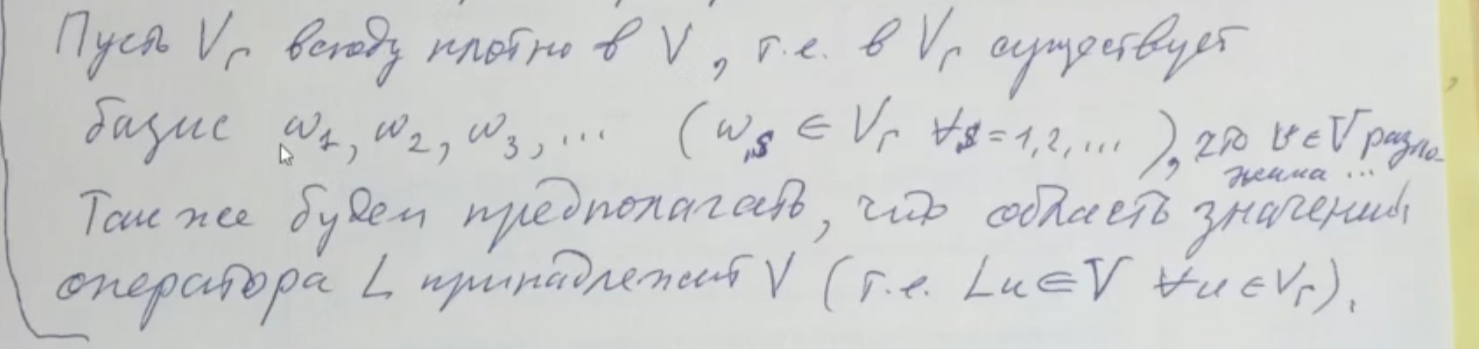 Пусть V_Γ всюду плотно в V, т.е. в V_Γ существует
базис w_1, w_2, w_3, ... (w_s ∈ V_Γ ∀s=1,2,...), что v∈V разло-
жима ...
Так же будем предполагать, что область значений
оператора L принадлежит V (т.е. Lu∈V ∀u∈V_Γ).